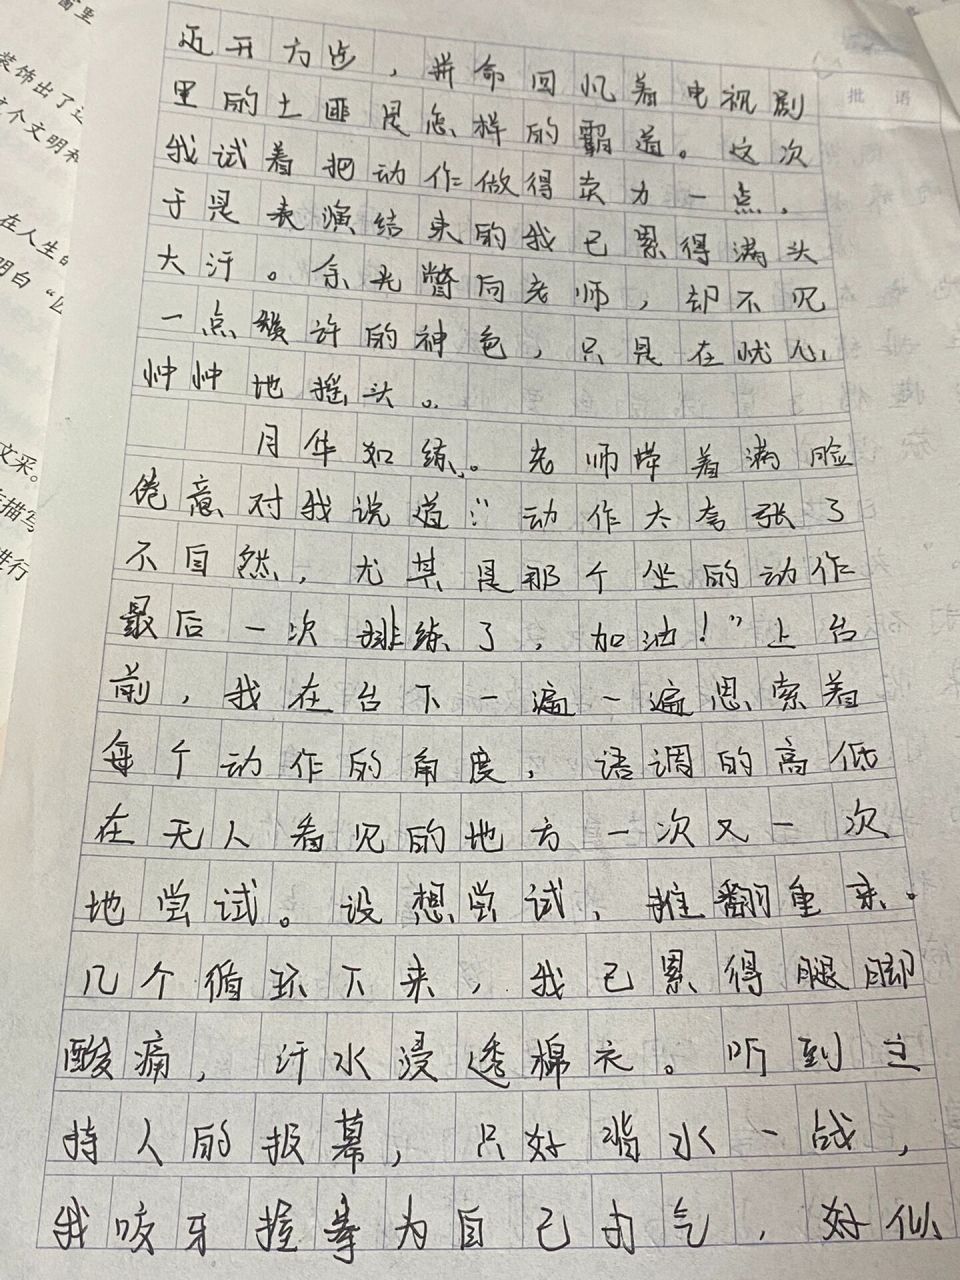 迈开方步，拼命回忆着电视剧
里的土匪是怎样的霸道。这次
我试着把动作做得卖力一点，
于是表演结束的我已累得满头
大汗。余光瞥向老师，却不见
一点赞许的神色，只是在忧心
忡忡地摇头。
月华如练。老师带着满脸
倦意对我说道：“动作太夸张了
不自然，尤其是那个坐的动作
最后一次排练了，加油！”上台
前，我在台下一遍一遍思索着
每个动作的角度，语调的高低
在无人看见的地方一次又一次
地尝试。设想尝试，推翻重来。
几个循环下来，我已累得腿脚
酸痛，汗水浸透棉衣。听到主
持人的报幕，只好背水一战，
我咬牙握拳为自己打气，好似
批语
窗里
装饰出了
个文明和
在人生的
明白“
文采。
描写
进行